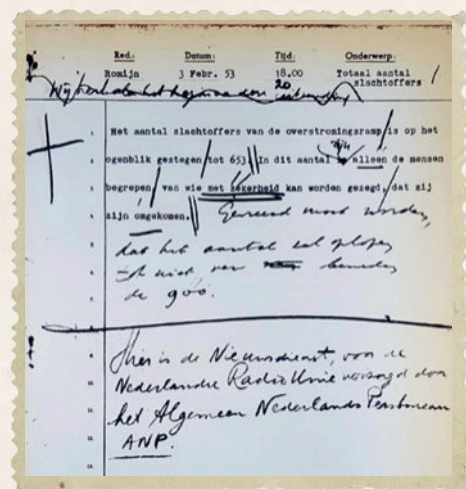 Red.: Datum: Tijd: Onderwerp:
Romijn 3 Febr. 53 18.00 Totaal aantal
20 slachtoffers
1
Wij herhalen het
1. Het aantal slachtoffers van de overstromingsramp is op het
2. ogenblik gestegen tot 653. In dit aantal zijn alleen de mensen
3. begrepen van wie met zekerheid kan worden gezegd, dat zij
4. zijn omgekomen. Gevreesd moet worden,
5. dat het aantal zal oplopen
6. tot niet ver beneden
7. de 900.
8. Hier is de Nieuwsdienst, voor de
9. Nederlandse Radio Unie verzorgd door
10. het Algemeen Nederlands Persbureau
ANP.